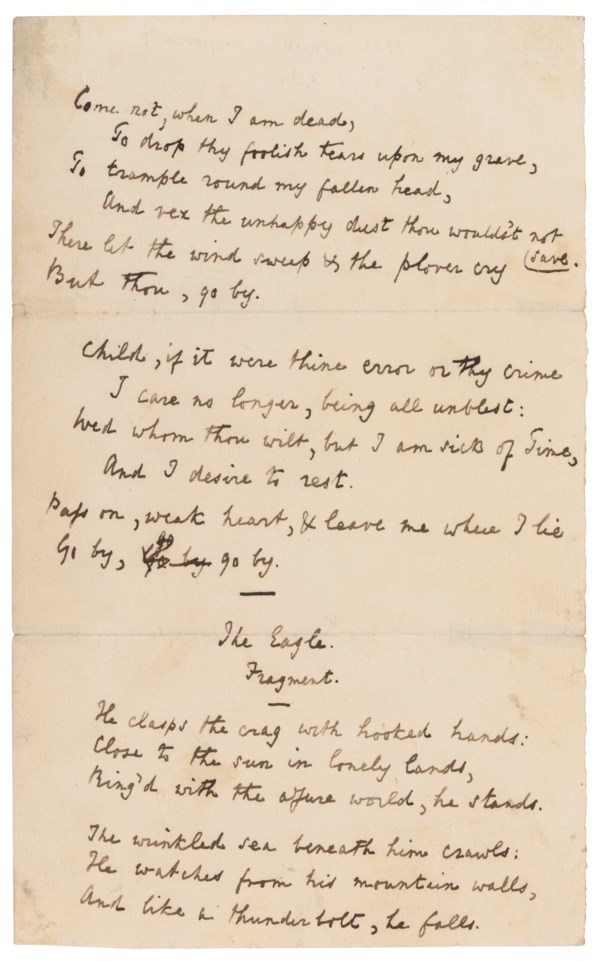 Come not, when I am dead,
To drop thy foolish tears upon my grave,
To trample round my fallen head,
And vex the unhappy dust thou wouldst not
(save.
There let the wind sweep & the plover cry
But thou, go by.
Child, if it were thine error or thy crime
I care no longer, being all unblest:
Wed whom thou wilt, but I am sick of Time,
And I desire to rest.
Pass on, weak heart, & leave me where I lie
Go by, go by.
The Eagle.
Fragment.
He clasps the crag with hooked hands:
Close to the sun in lonely lands,
Ring'd with the azure world, he stands.
The wrinkled sea beneath him crawls:
He watches from his mountain walls,
And like a thunderbolt, he falls.